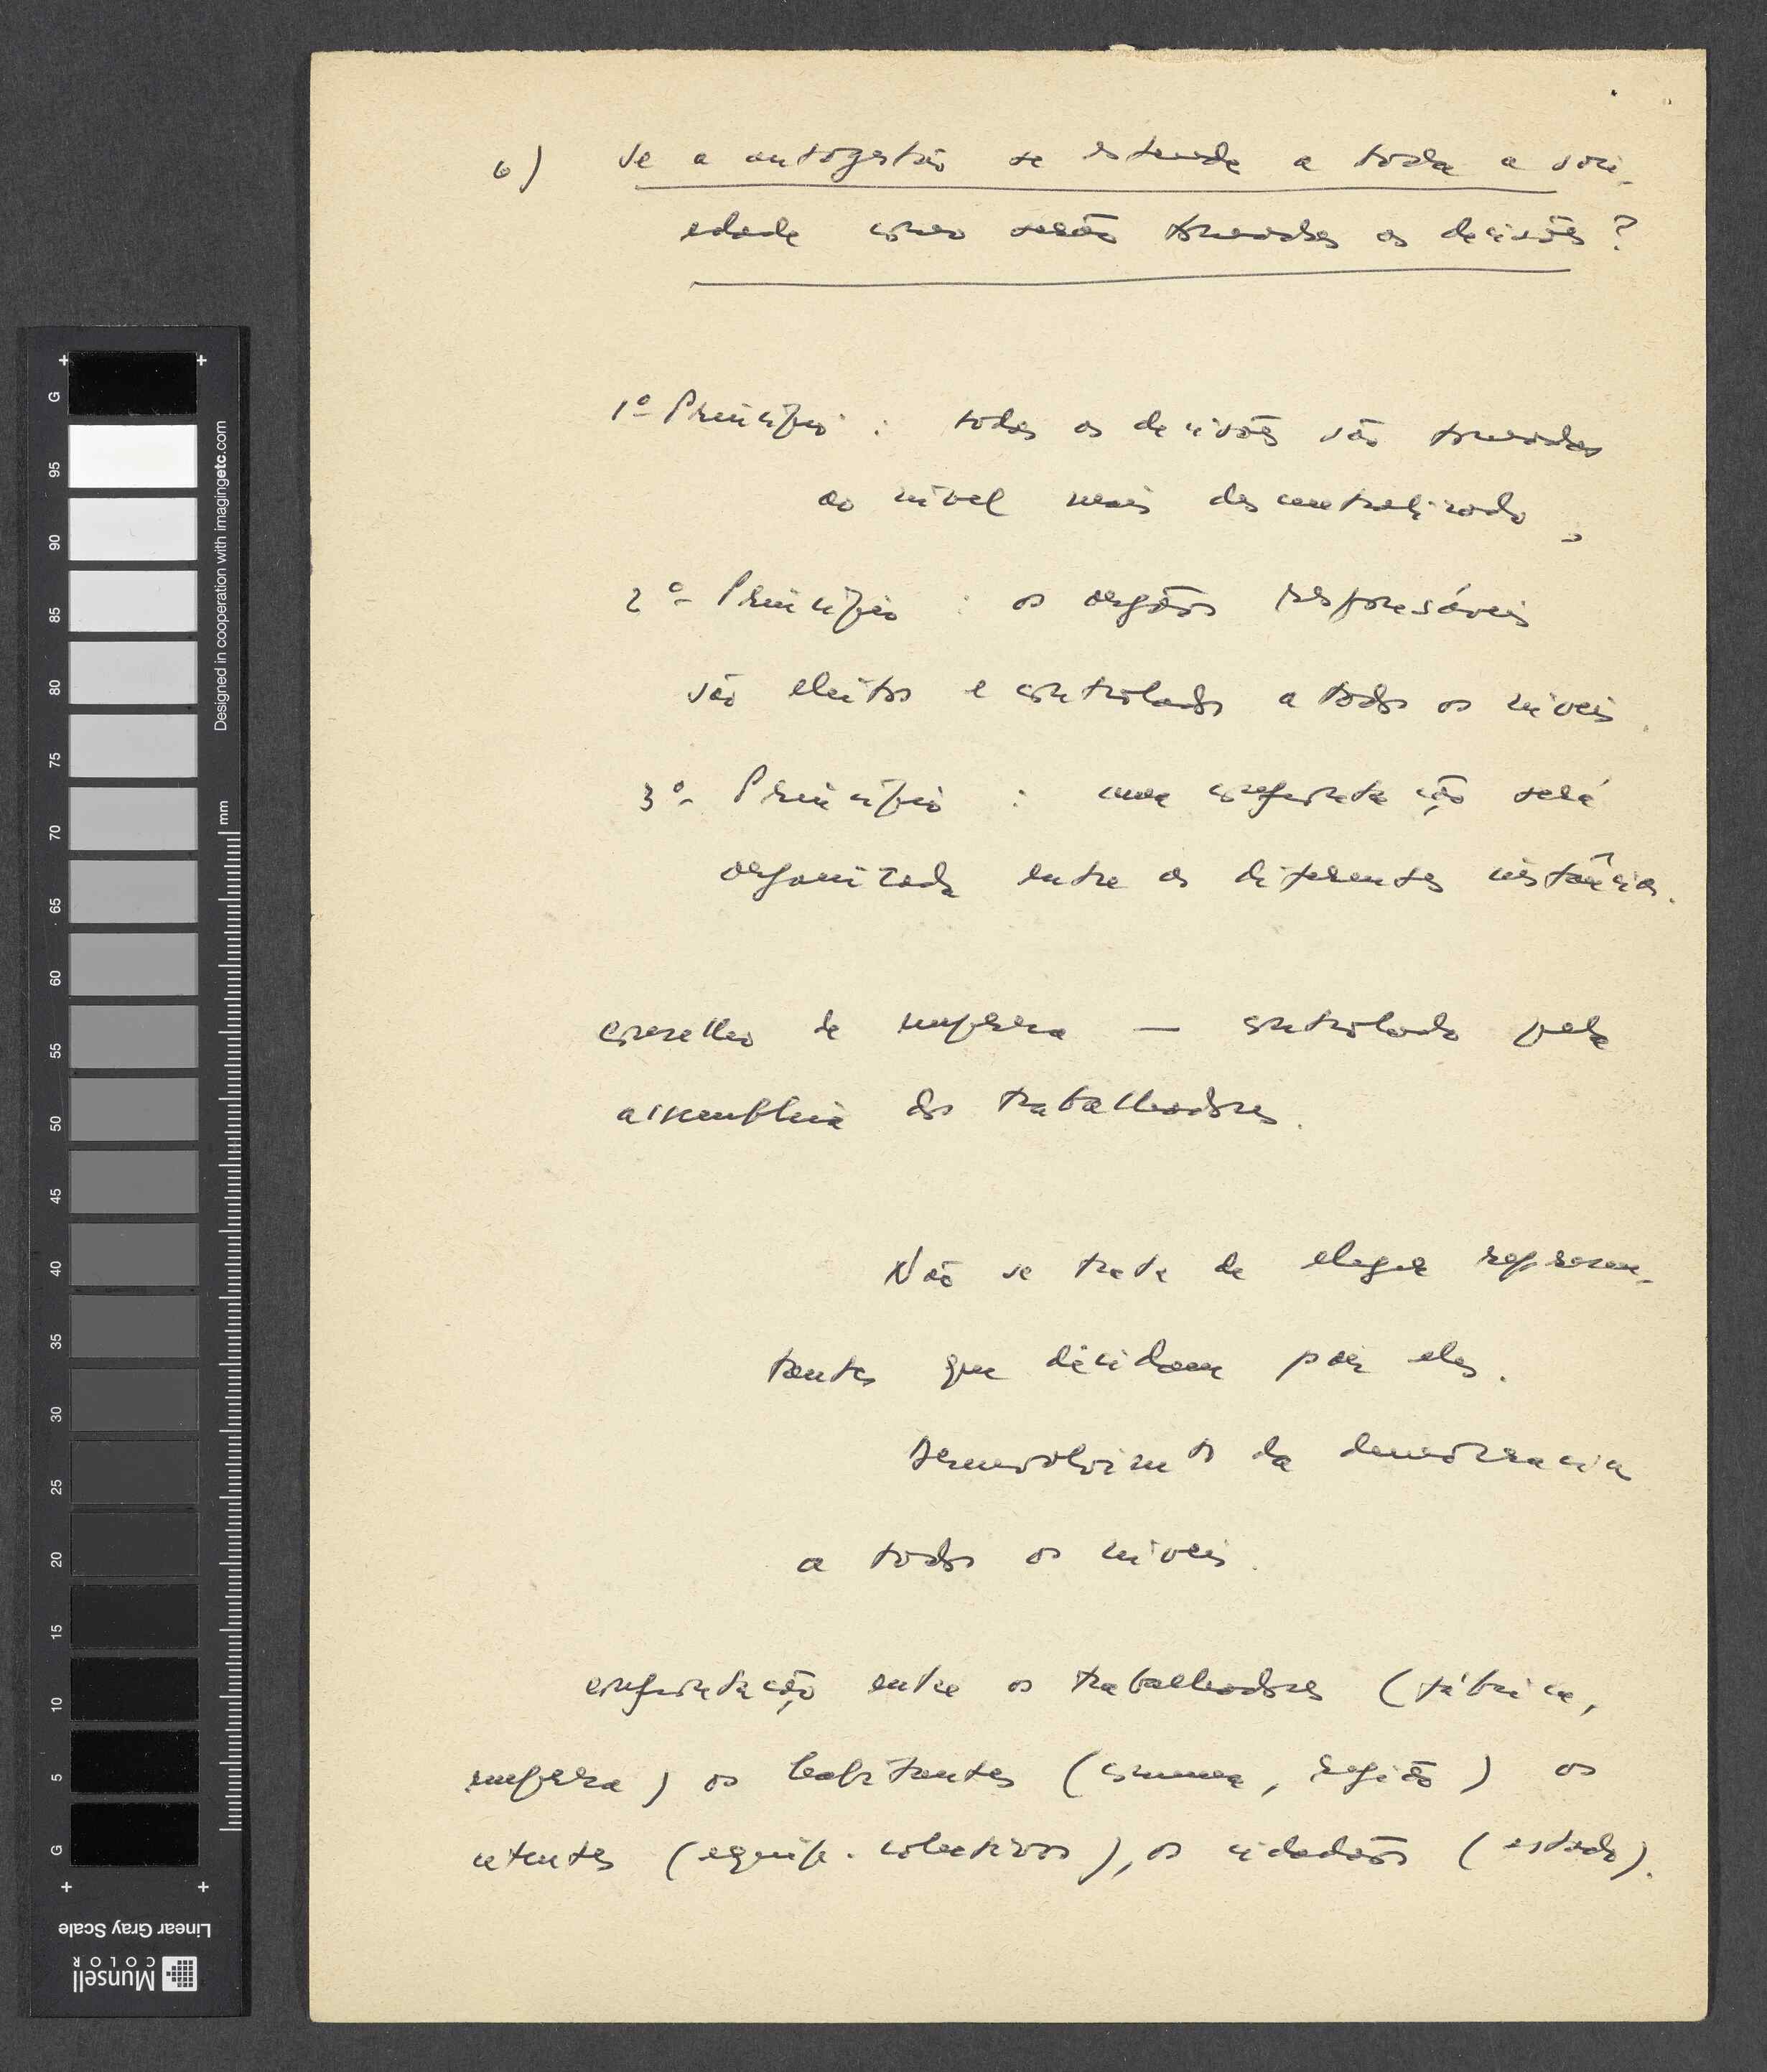 6) Se a autogestão se estende a toda a soci-
edade como serão tomadas as decisões?
1º Princípio : todas as decisões são tomadas
ao nível mais descentralizado,
2º- Princípio : os orgãos responsáveis
são eleitos e controlados a todos os níveis.
3º- Princípio : uma confrontação será
organizada entre as diferentes instâncias.
conselho de empresa — controlado pela
assembleia dos trabalhadores.
Não se trata de eleger represen-
tantes que decidam por eles.
Desenvolvimento da democracia
a todos os níveis.
confrontação entre os trabalhadores (fábrica,
empresa) os habitantes (comuna, região) os
utentes (equip. colectivos), os cidadãos (estado).
G
95
90
85
80
75
70
65
60
55
50
45
40
35
30
25
20
15
10
5
G
mm
Designed in cooperation with imagingetc.com
Linear Gray Scale
Munsell
COLOR